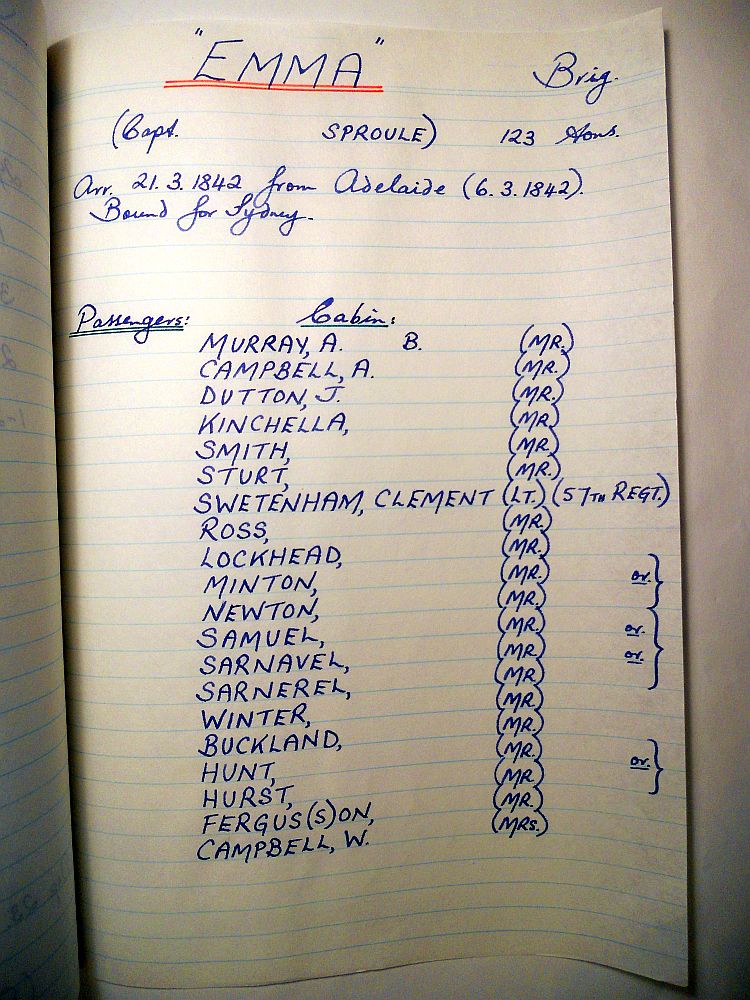 "EMMA" Brig.
(Capt. SPROULE) 123 tons.
Arr. 21.3.1842 from Adelaide (6.3.1842).
Bound for Sydney.
Passengers: Cabin:
MURRAY, A. B. (MR.)
CAMPBELL, A. (MR.)
DUTTON, J. (MR.)
KINCHELLA, (MR.)
SMITH, (MR.)
STURT, (MR.)
SWETENHAM, CLEMENT (LT.) (57TH REGT.)
ROSS, (MR.)
LOCKHEAD, (MR.)
MINTON, (MR.) or. }
NEWTON, (MR.)
SAMUEL, (MR.) or. }
SARNAVEL, (MR.) or.
SARNEREL, (MR.)
WINTER, (MR.)
BUCKLAND, (MR.)
HUNT, (MR.) or. }
HURST, (MR.)
FERGUS(S)ON, (MR.)
CAMPBELL, W. (MRS.)